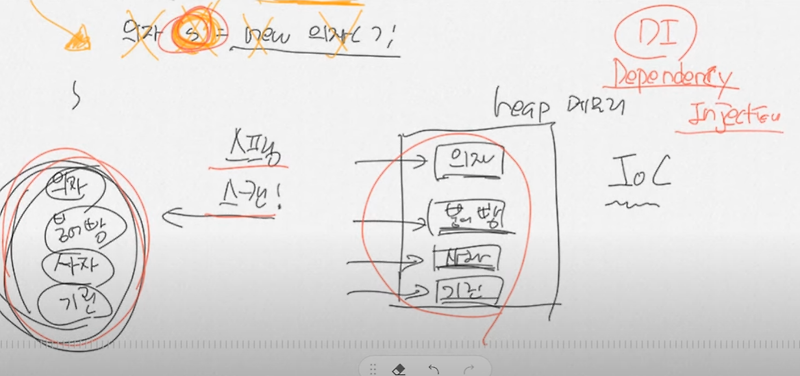 의자 s = new 의자();
DI
Dependency
Injection
heap 메모리
IoC
스프링
스캔!
의자
붕어빵
사자
기린
의자
붕어빵
사자
기린